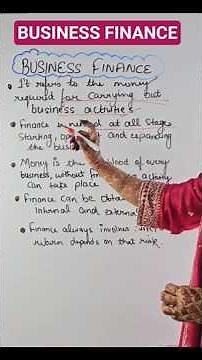 BUSINESS FINANCE
BUSINESS FINANCE
It refers to the money
required for carrying out
business activities
Finance is needed at all stages
Starting, and expanding
the
Money is the blood of every
business, without activity
can take place
Finance can be
internal and
Finance always involves
return depends on that risk.